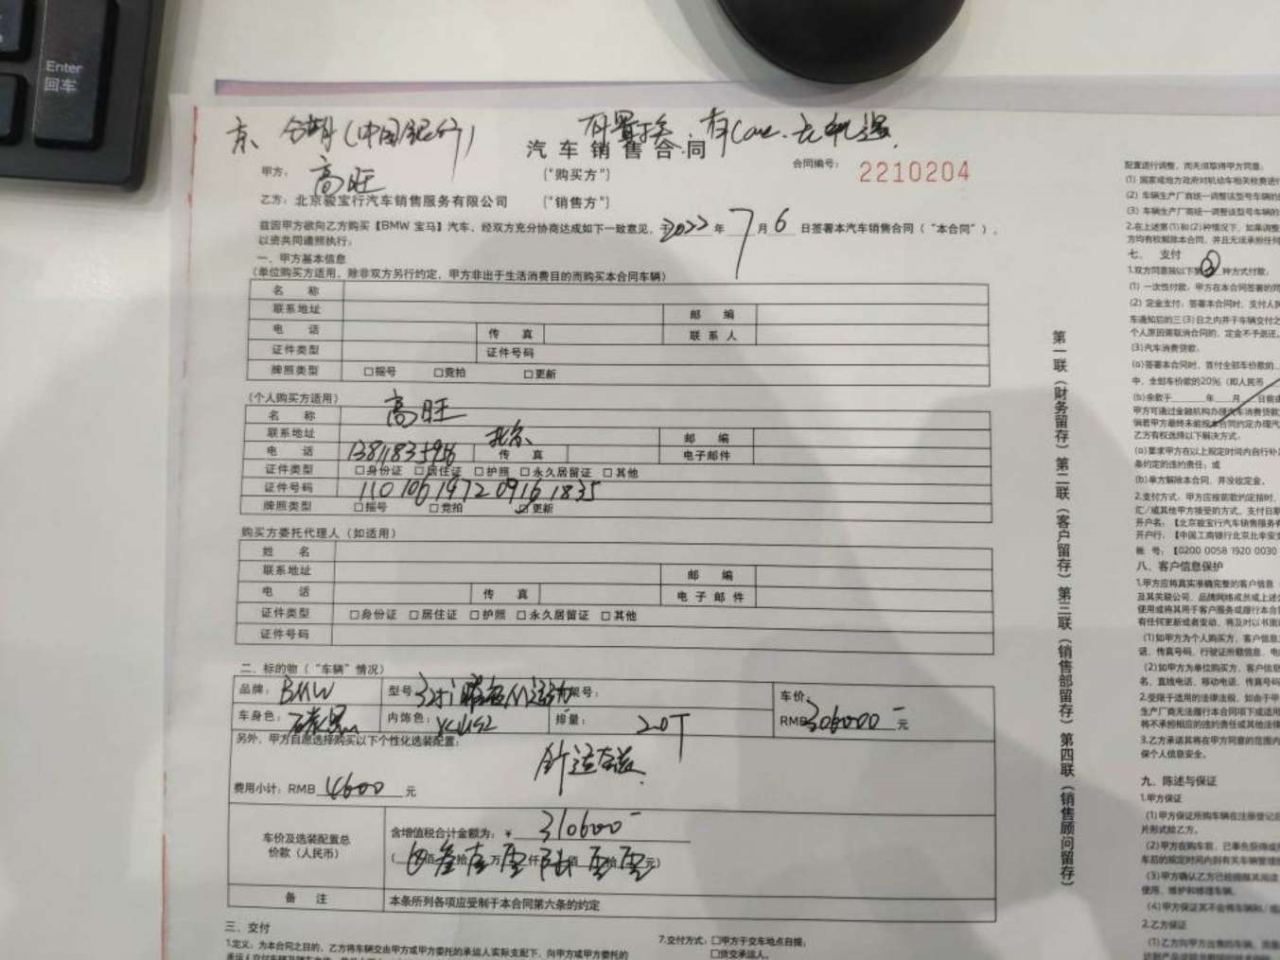 Enter
回车
京、分期(中国银行)
有置换.有Care.
汽车销售合同
甲方: 高旺 ("购买方")
合同编号: 2210204
乙方: 北京骏宝行汽车销售服务有限公司 ("销售方")
兹因甲方欲向乙方购买【BMW 宝马】汽车, 经双方充分协商达成如下一致意见, 于2022年7月6日签署本汽车销售合同("本合同"),
以资共同遵照执行:
一、甲方基本信息
(单位购买方适用, 除非双方另行约定, 甲方非出于生活消费目的而购买本合同车辆)
名 称
联系地址 邮 编
电 话 传 真 联 系 人
证件类型 证件号码
牌照类型 □摇号 □竞拍 □更新
(个人购买方适用)
名 称 高旺
联系地址 北京 邮 编
电 话 传 真 电子邮件
证件类型 □身份证 □居住证 □护照 □永久居留证 □其他
证件号码 110106197209161835
牌照类型 □摇号 □竞拍 □更新
购买方委托代理人(如适用)
姓 名
联系地址 邮 编
电 话 传 真 电 子 邮 件
证件类型 □身份证 □居住证 □护照 □永久居留证 □其他
证件号码
二、标的物("车辆"情况)
品牌: BMW 型号: 号: 车价:
车身色: 内饰色: 排量: 2.0T RMB 306000 元
另外, 甲方自愿选择购买以下个性化选装配置:
费用小计: RMB 4600 元
车价及选装配置总
价款(人民币)
含增值税合计金额为: ¥ 310600
叁 壹万零仟陆佰零拾零元)
备 注 本条所列各项应受制于本合同第六条的约定
三、交付
1.定义: 为本合同之目的, 乙方将车辆交由甲方或甲方委托的承运人实际支配下, 向甲方或甲方委托的
7.交付方式: □甲方于交车地点自提;
□货交承运人。
第一联(财务留存)第二联(客户留存)第三联(销售部留存)第四联(销售顾问留存)
配置进行调整, 而无须取得甲方同意:
(1) 国家或地方政府对机动车相关税费进行
(2) 车辆生产厂商统一调整该型号车辆的
(3) 车辆生产厂商统一调整该型号车辆的
2.在上述第(1)和(2)种情况下, 如果调整
方均有权解除本合同, 并且无须承担任何
七、支付
1.双方同意按以下第②种方式付款:
(1) 一次性付款, 甲方在本合同签署的同
(2) 定金支付, 签署本合同时, 支付人民
车通知后的三(3)日之内并于车辆交付之
个人原因需取消合同的, 定金不予退还。
(3)汽车消费贷款:
(a)签署本合同时, 首付全部车价款的
中, 全部车价款的20% (即人民币
(b)余款于 年 月 日前由
甲方可通过金融机构办理汽车消费贷款
乙方有权选择以下解决方式:
(a)要求甲方在以上规定时间内自行补足
条约定的违约责任; 或
(b)单方解除本合同, 并没收定金。
2.支付方式: 甲方应按前款约定按时、
汇/或其他甲方接受的方式, 支付日期
开户名: 【北京骏宝行汽车销售服务有
开户行: 【中国工商银行北京北辛安
账 号: 【0200 0058 1920 0030
八、客户信息保护
1.甲方应将真实准确完整的客户信息
及其关联公司、品牌网络成员或上述公
使用或将其用于客户服务或履行本合同
有任何更新或者变动, 将及时以书面
(1)如甲方为个人购买方, 客户信息
话、传真号码、行驶证所载信息、电
(2)如甲方为单位购买方, 客户信息
名、直线电话、移动电话、传真号码
2.受限于适用的法律法规, 如由于甲
生产厂商无法履行本合同项下或适用
将不承担相应的违约责任或其他法律
3.乙方承诺其将在甲方同意的范围内
保个人信息安全。
九、陈述与保证
1.甲方保证
(1)甲方保证所购车辆在注册登记后
片形式给乙方。
(2)甲方在购车前, 已事先获得或
车后的规定时间内到有关车辆管理
(3)甲方确认乙方已
使用、维护和修理车辆。
(4)甲方保证其不会将车辆和/或
2.乙方保证
(1)乙方向甲方出售的车辆,